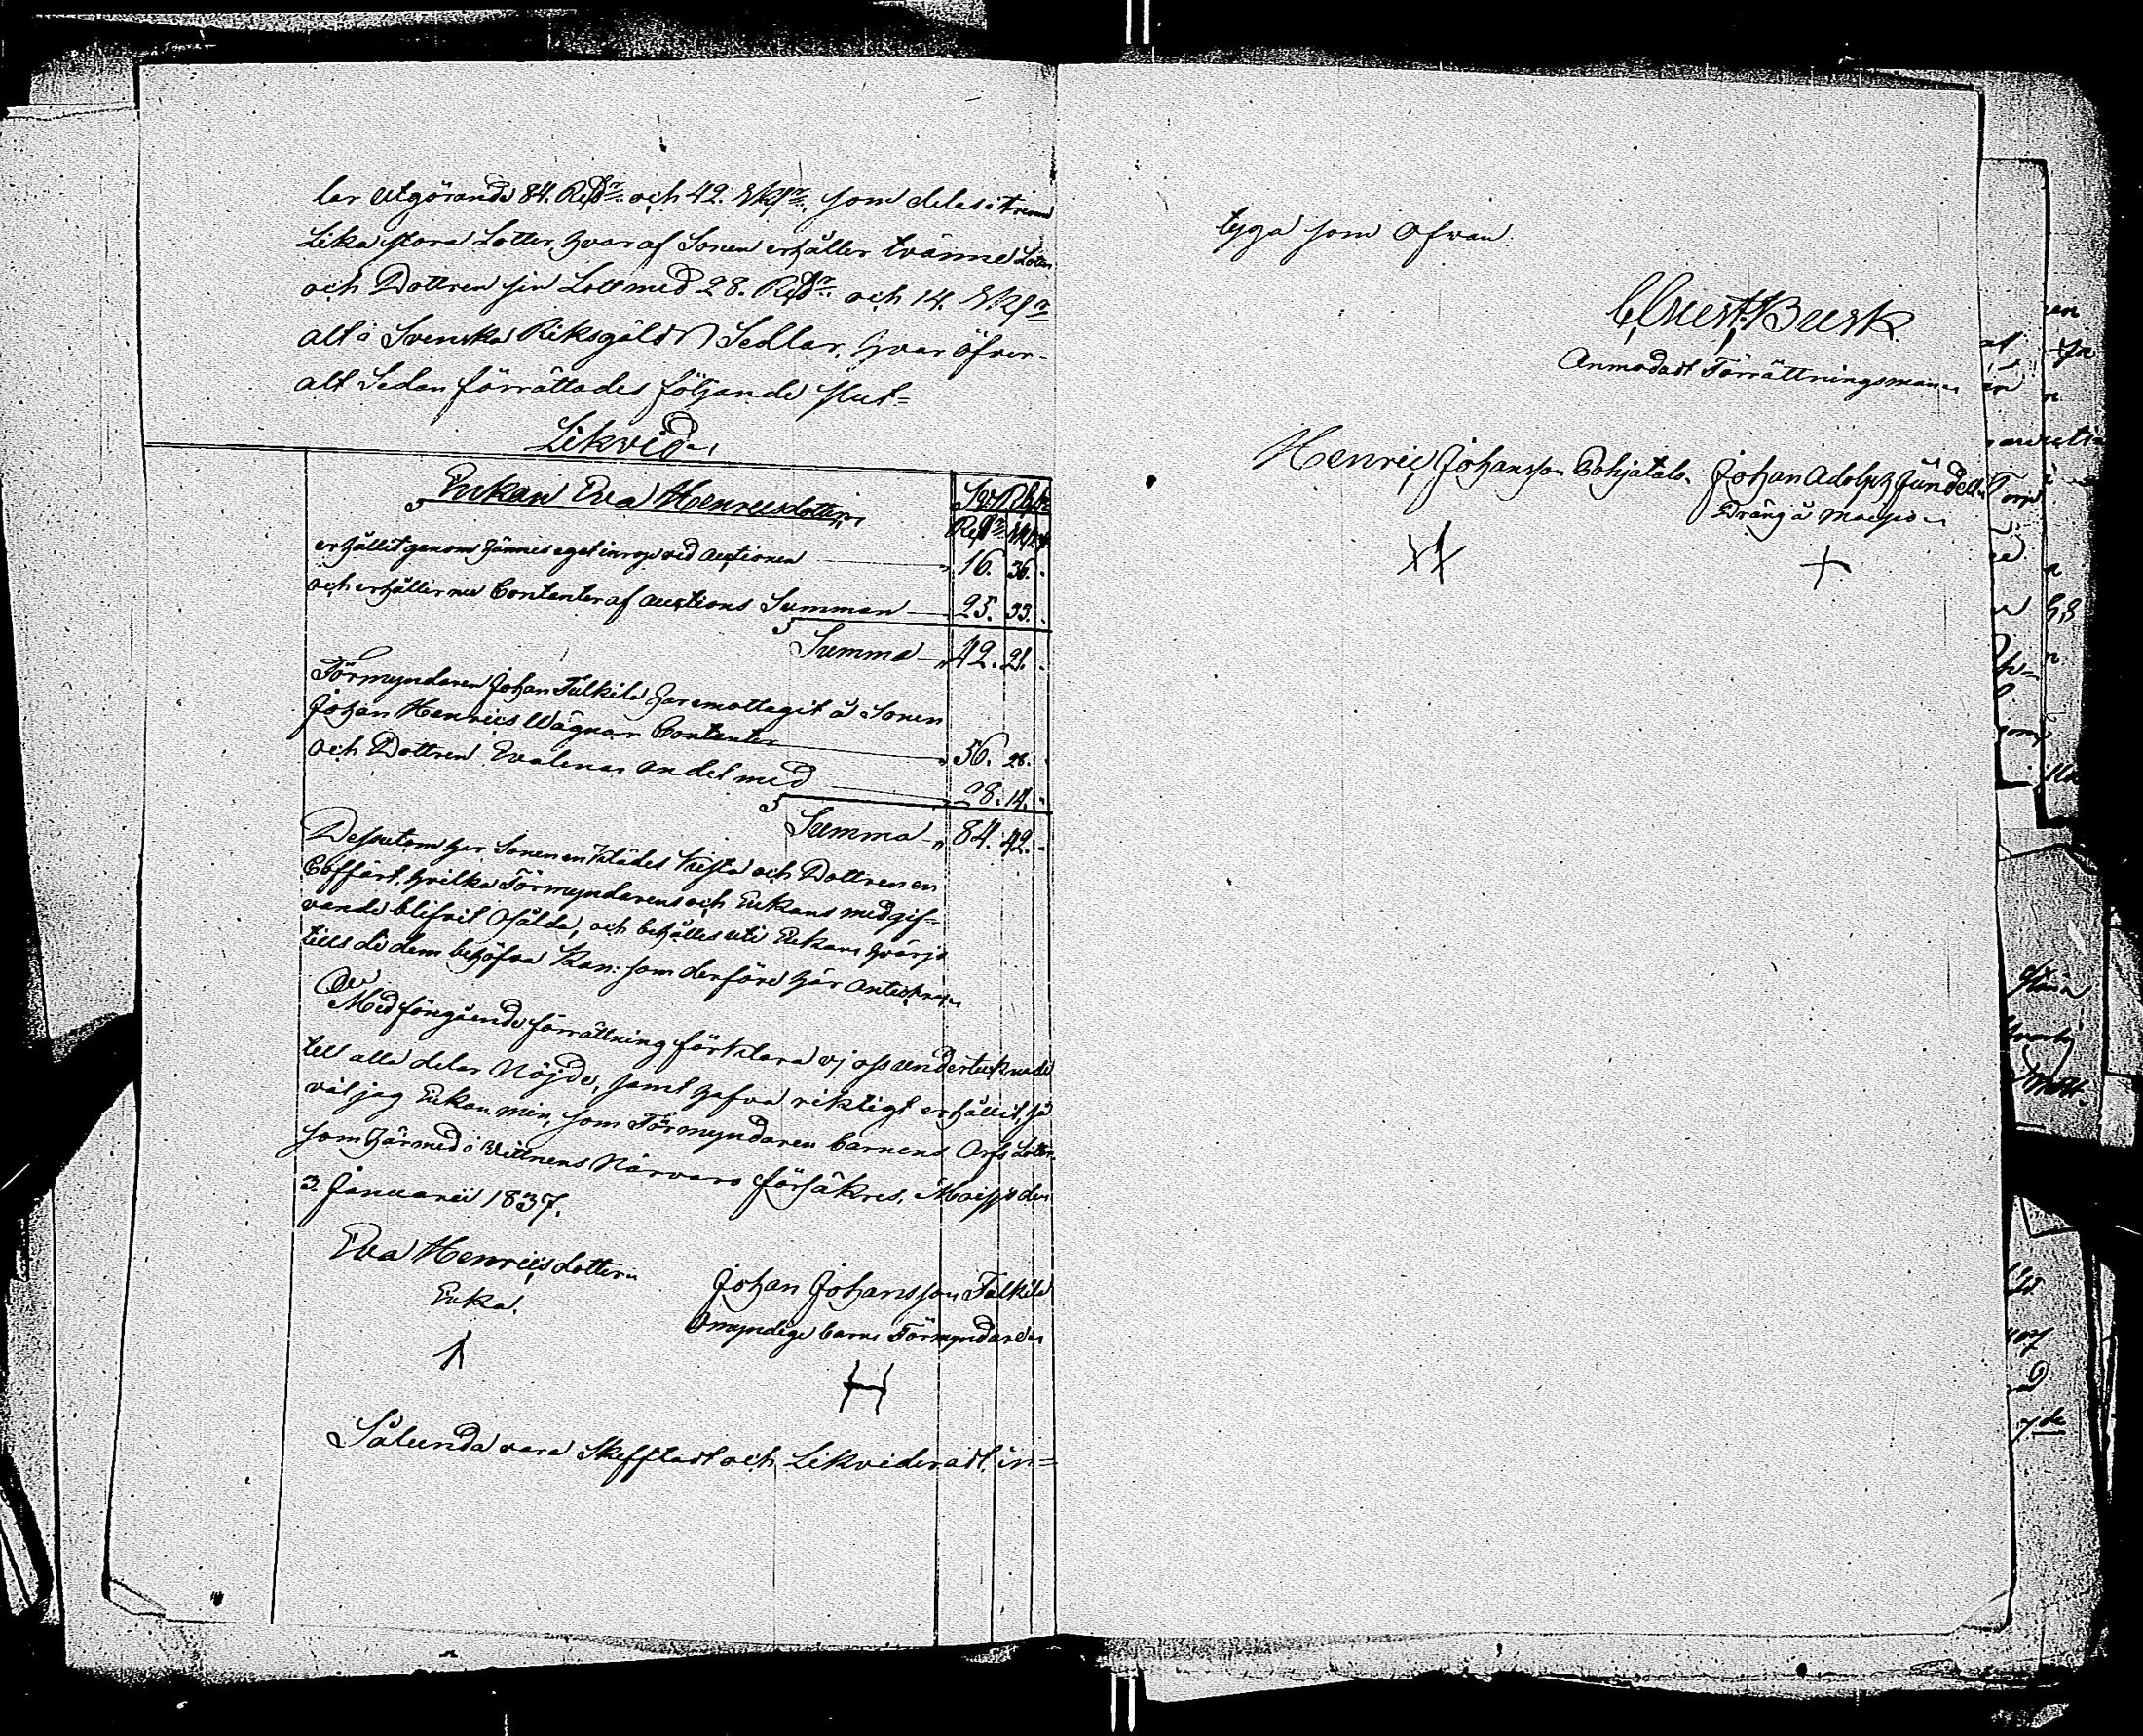 lar utgörande 84. Rd:r och 42. sk:r, som delas i trenne
Lika stora Lotter, hvar af Sonen erhåller tvänne Lotter
och Dottren sin Lott med 28. Rd:r och 14. sk:r
alt i Svenska Riksgälds Sedlar, hvar öfver-
alt Sedan förrättades följande Slut=
Likvid
Enkan Eva Henricsdotter
erhållit genom hännes eget inrop vid auctionen 16. 36.
och erhåller nu Contenter af auctions Summan 25. 33.
Summa 42. 21.
Förmyndaren Johan Falkila har emottagit å Sonen
Johan Henrics Wägnar Contenter 56. 28.
och Dottren Evalenas andel med 28. 14.
Summa 84. 42.
Dessutom har Sonen en Klädes Väst och Dottren en
Coffärt, hvilka Förmyndarens och Enkans medgif=
vande blifvit Osålda, och behålles uti Enkans hvärjo
tills de dem behöfva Kan: som derföre här antecknas
Med föregående förrättning förklara vj oss undertecknade
till alla delar Nöjde, samt hafva riktigt erhållit, så
väl jag Enkan min, som Förmyndaren barnens Arfs Lotter
som härmed i Vittnens Närvaro försäkres,
3. Januarii 1837.
Eva Henricsdotter
Enka.
Johan Johansson Falkila
Omyndige barns Förmyndare
Sålunda vara Skefftadt och Likvideradt, in=
tyga som ofvan.
Busk
Anmodadt Förrättningsman
Henric Johansson Pohjatalo
Johan Adolph
Dräng å